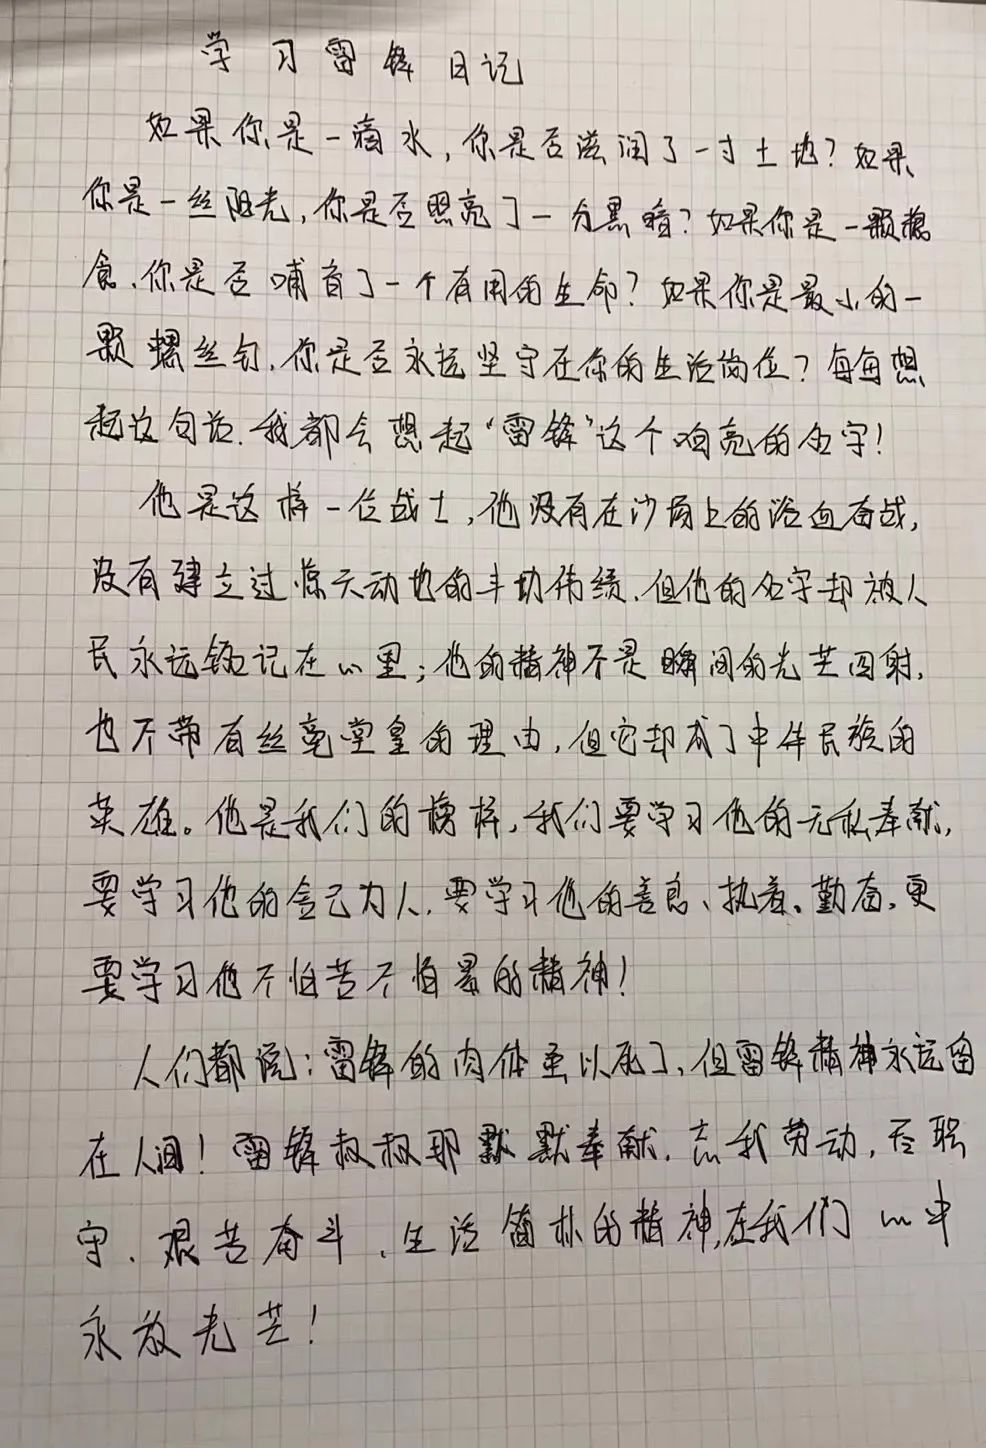 学习雷锋日记
如果你是一滴水,你是否滋润了一寸土地?如果
你是一丝阳光,你是否照亮了一分黑暗?如果你是一颗粮
食,你是否哺育了一个有用的生命?如果你是最小的一
颗螺丝钉,你是否永远坚守在你的生活岗位?每每想
起这句话,我都会想起“雷锋”这个响亮的名字!
他是这样一位战士,他没有在沙场上的浴血奋战,
没有建立过惊天动地的丰功伟绩,但他的名字却被人
民永远铭记在心里;他的精神不是瞬间的光芒四射,
也不带有丝毫堂皇的理由,但它却成了中华民族的
英雄。他是我们的榜样,我们要学习他的无私奉献,
要学习他的舍己为人,要学习他的善良、执着、勤奋,更
要学习他不怕苦不怕累的精神!
人们都说:雷锋的肉体虽以死了,但雷锋精神永远留
在人间!雷锋叔叔那默默奉献,忘我劳动,尽职
守、艰苦奋斗、生活简朴的精神,在我们心中
永放光芒!